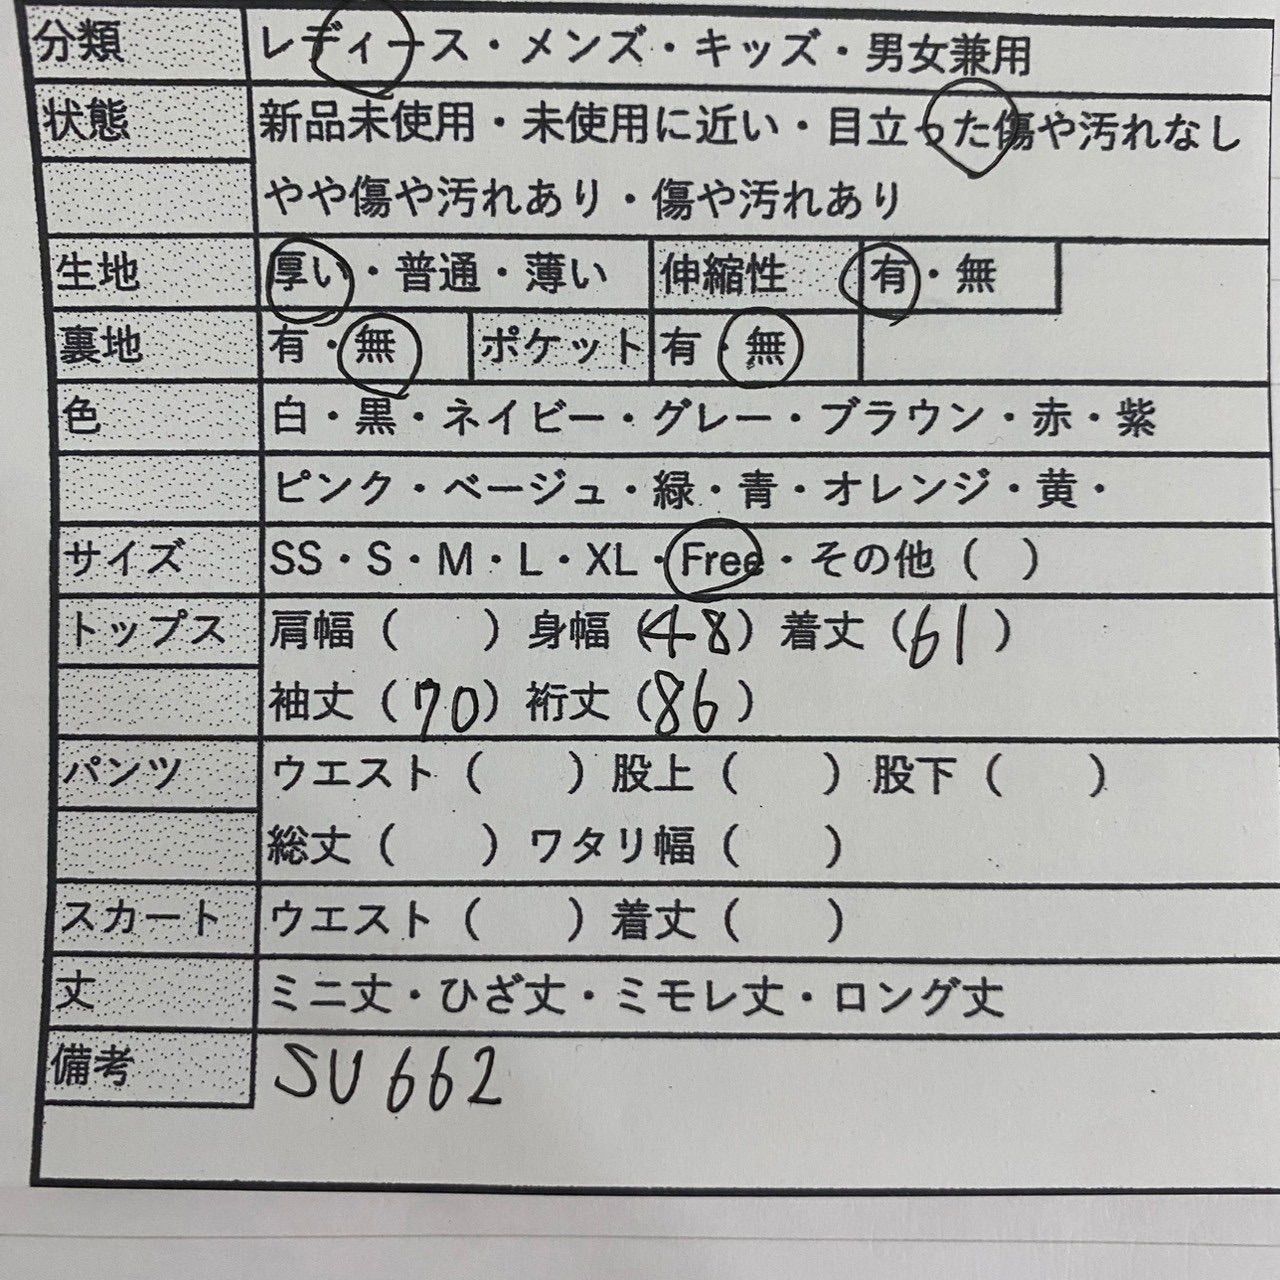 分類 レディース・メンズ・キッズ・男女兼用
状態 新品未使用・未使用に近い・目立った傷や汚れなし
やや傷や汚れあり・傷や汚れあり
生地 厚い・普通・薄い 伸縮性 有・無
裏地 有・無 ポケット 有・無
色 白・黒・ネイビー・グレー・ブラウン・赤・紫
ピンク・ベージュ・緑・青・オレンジ・黄・
サイズ SS・S・M・L・XL・Free・その他（ ）
トップス 肩幅（ ）身幅（48）着丈（61）
袖丈（70）裄丈（86）
パンツ ウエスト（ ）股上（ ）股下（ ）
総丈（ ）ワタリ幅（ ）
スカート ウエスト（ ）着丈（ ）
丈 ミニ丈・ひざ丈・ミモレ丈・ロング丈
備考 SU662